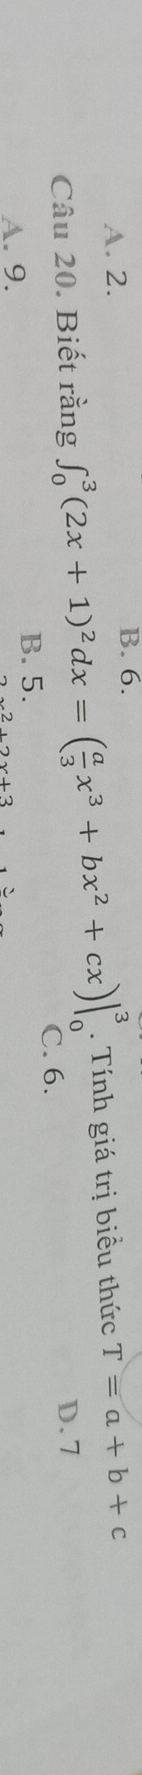 A. 2. B. 6.
Câu 20. Biết rằng ∫₀³(2x + 1)²dx = (a/3 x³ + bx² + cx)|₀³. Tính giá trị biểu thức T = a + b + c
A. 9. B. 5. C. 6. D. 7